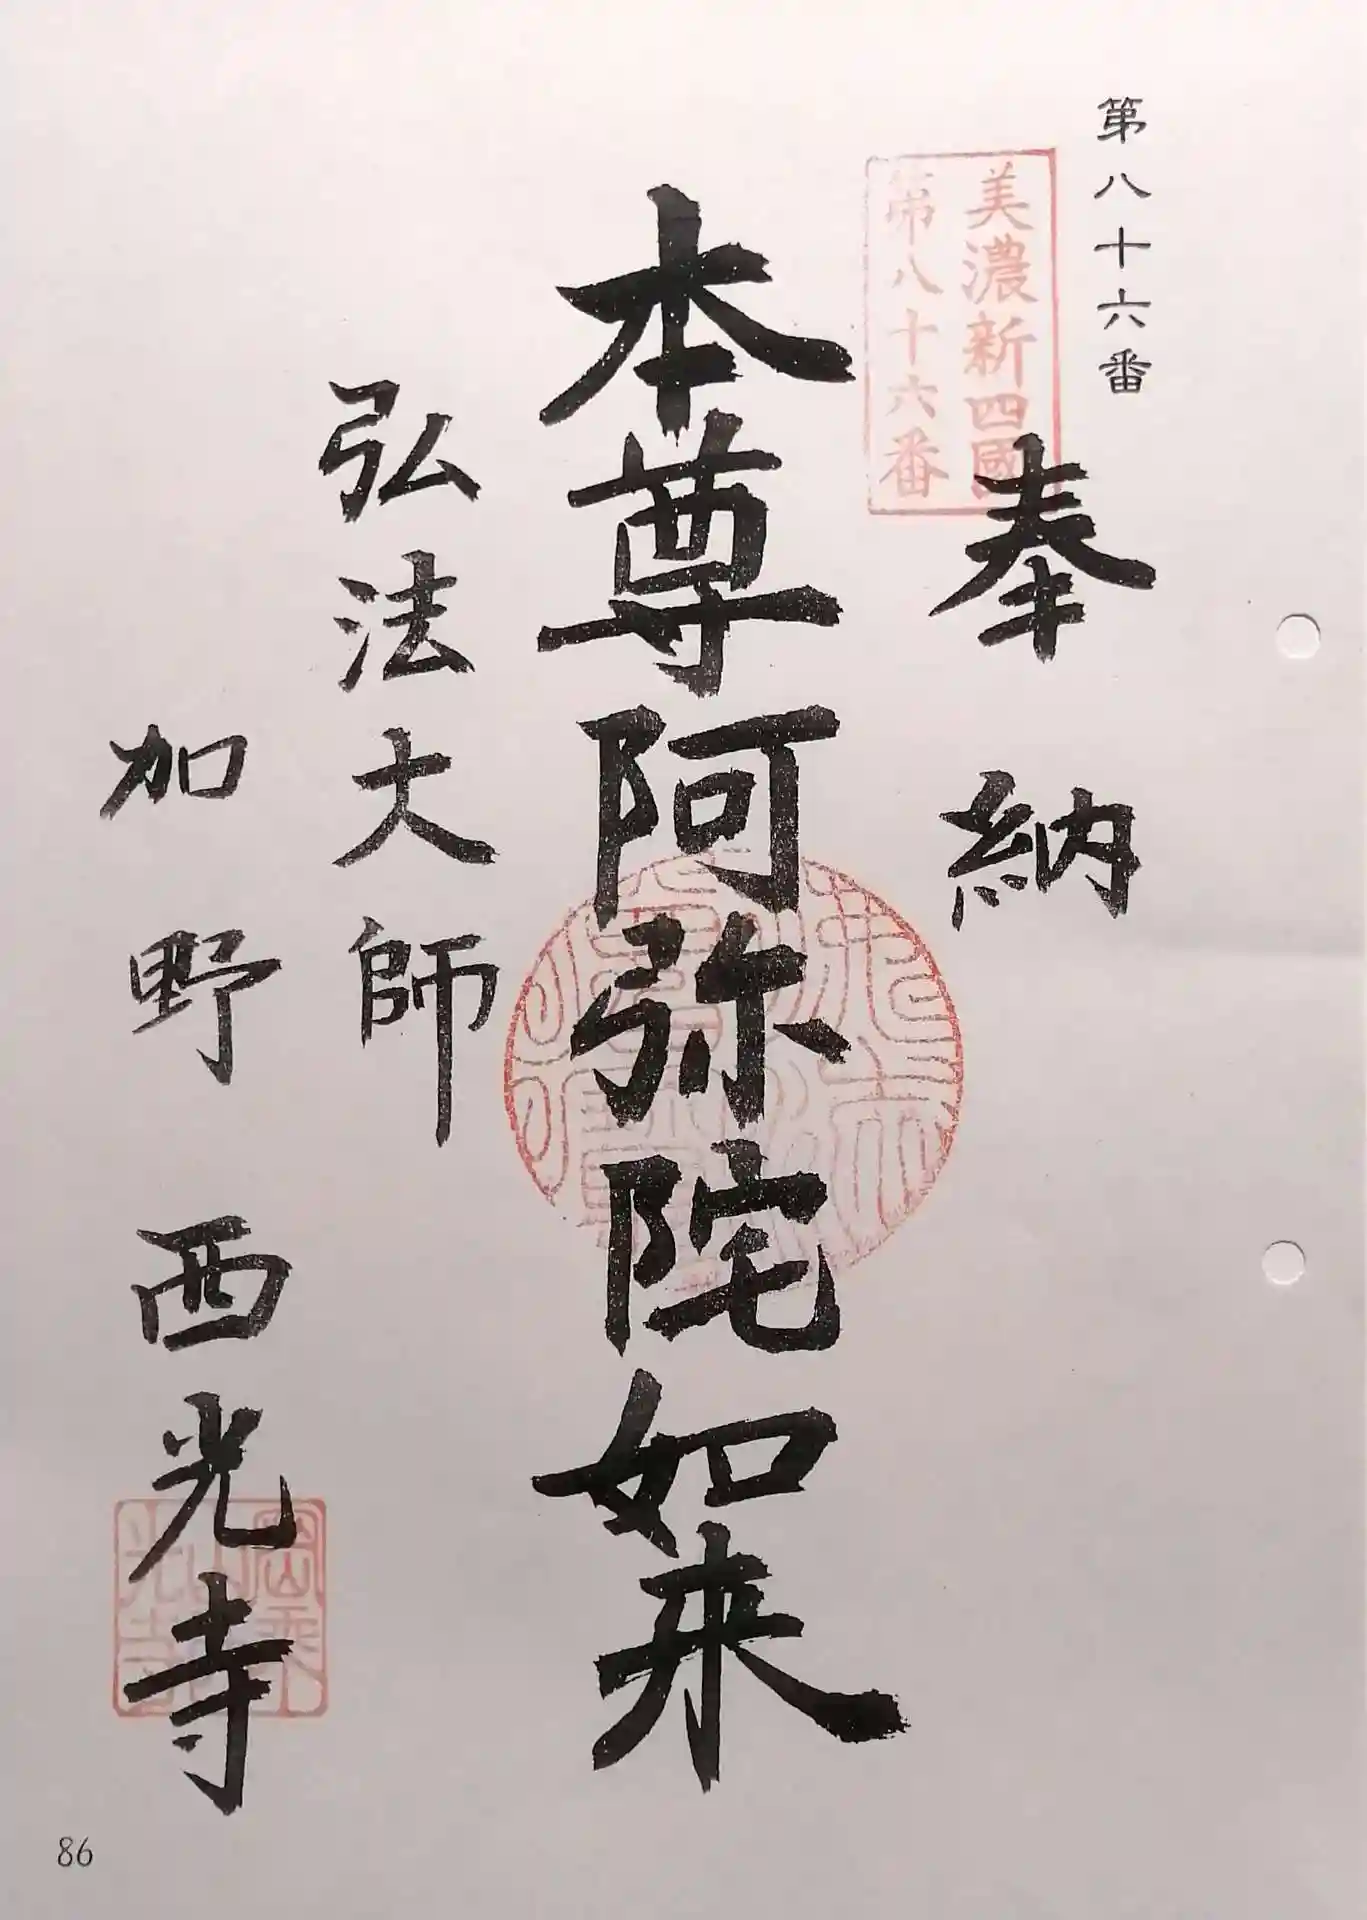 第八十六番
美濃新四國
第八十六番
奉納
本尊阿弥陀如来
弘法大師
加野 西光寺
86